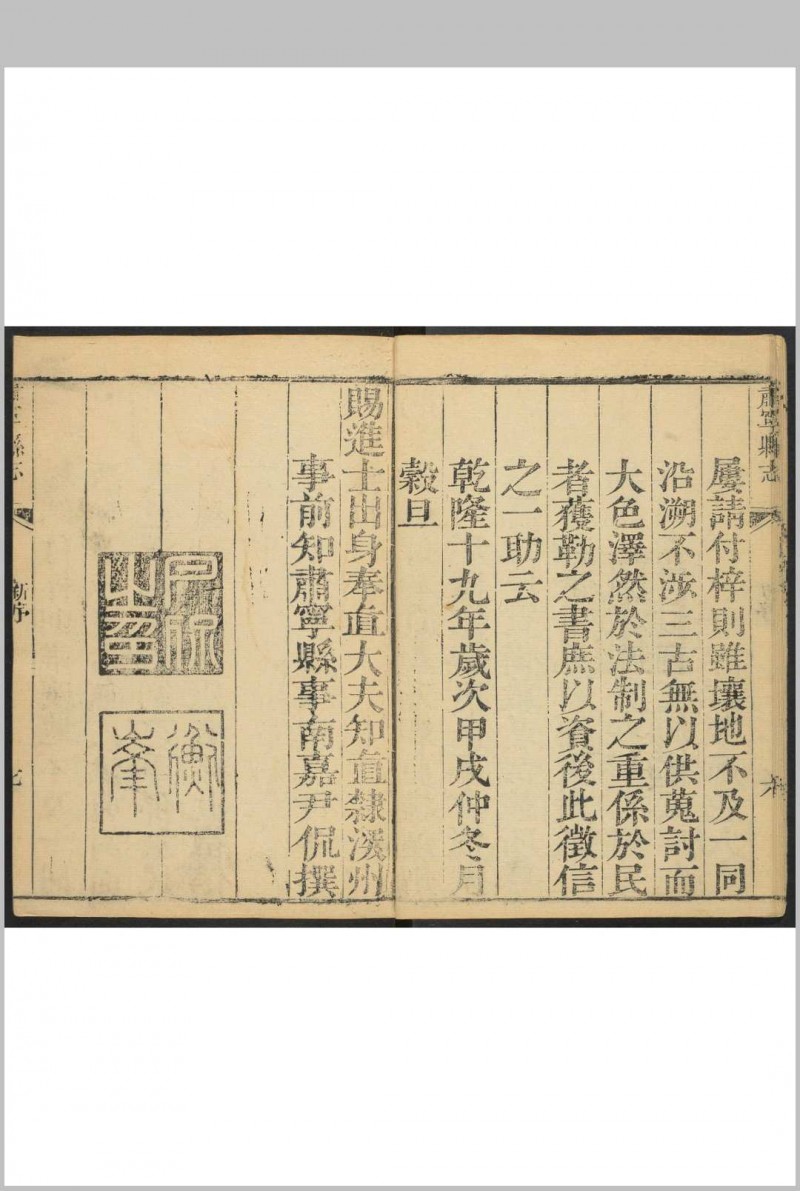 肅寧縣志
屢請付梓則雖壤地不及一同
沿溯不涉三古無以供蒐討而
大色澤然於法制之重係於民
者獲勒之書庶以資後此徵信
之一助云
乾隆十九年歲次甲戌仲冬月
穀旦
賜進士出身奉直大夫知直隸深州
事前知肅寧縣事南嘉尹侃撰
尹侃之印
衡峯
肅寧縣志
新序
七